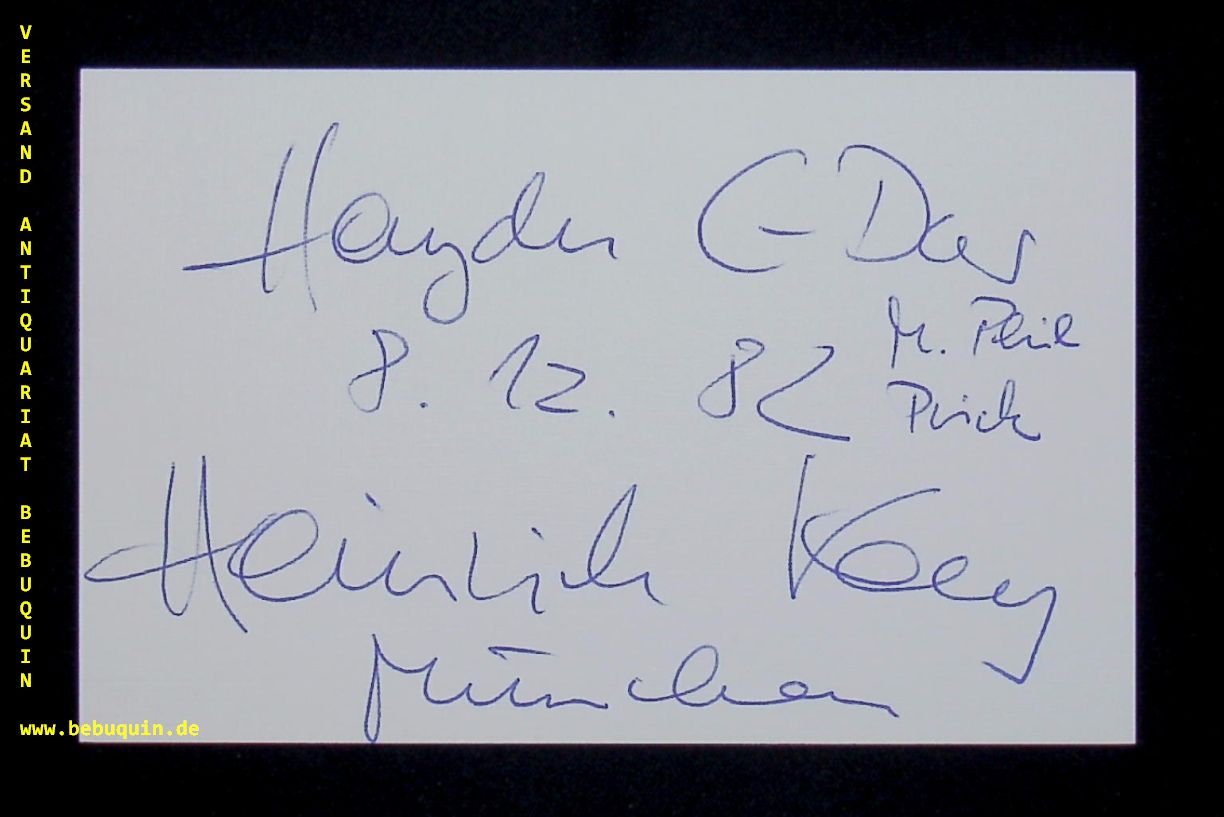 VERSAND ANTIQUARIAT BEBUQUIN
www.bebuquin.de
Haydn C-Dur
8. 12. 82
M. Phil
Heinrich
München